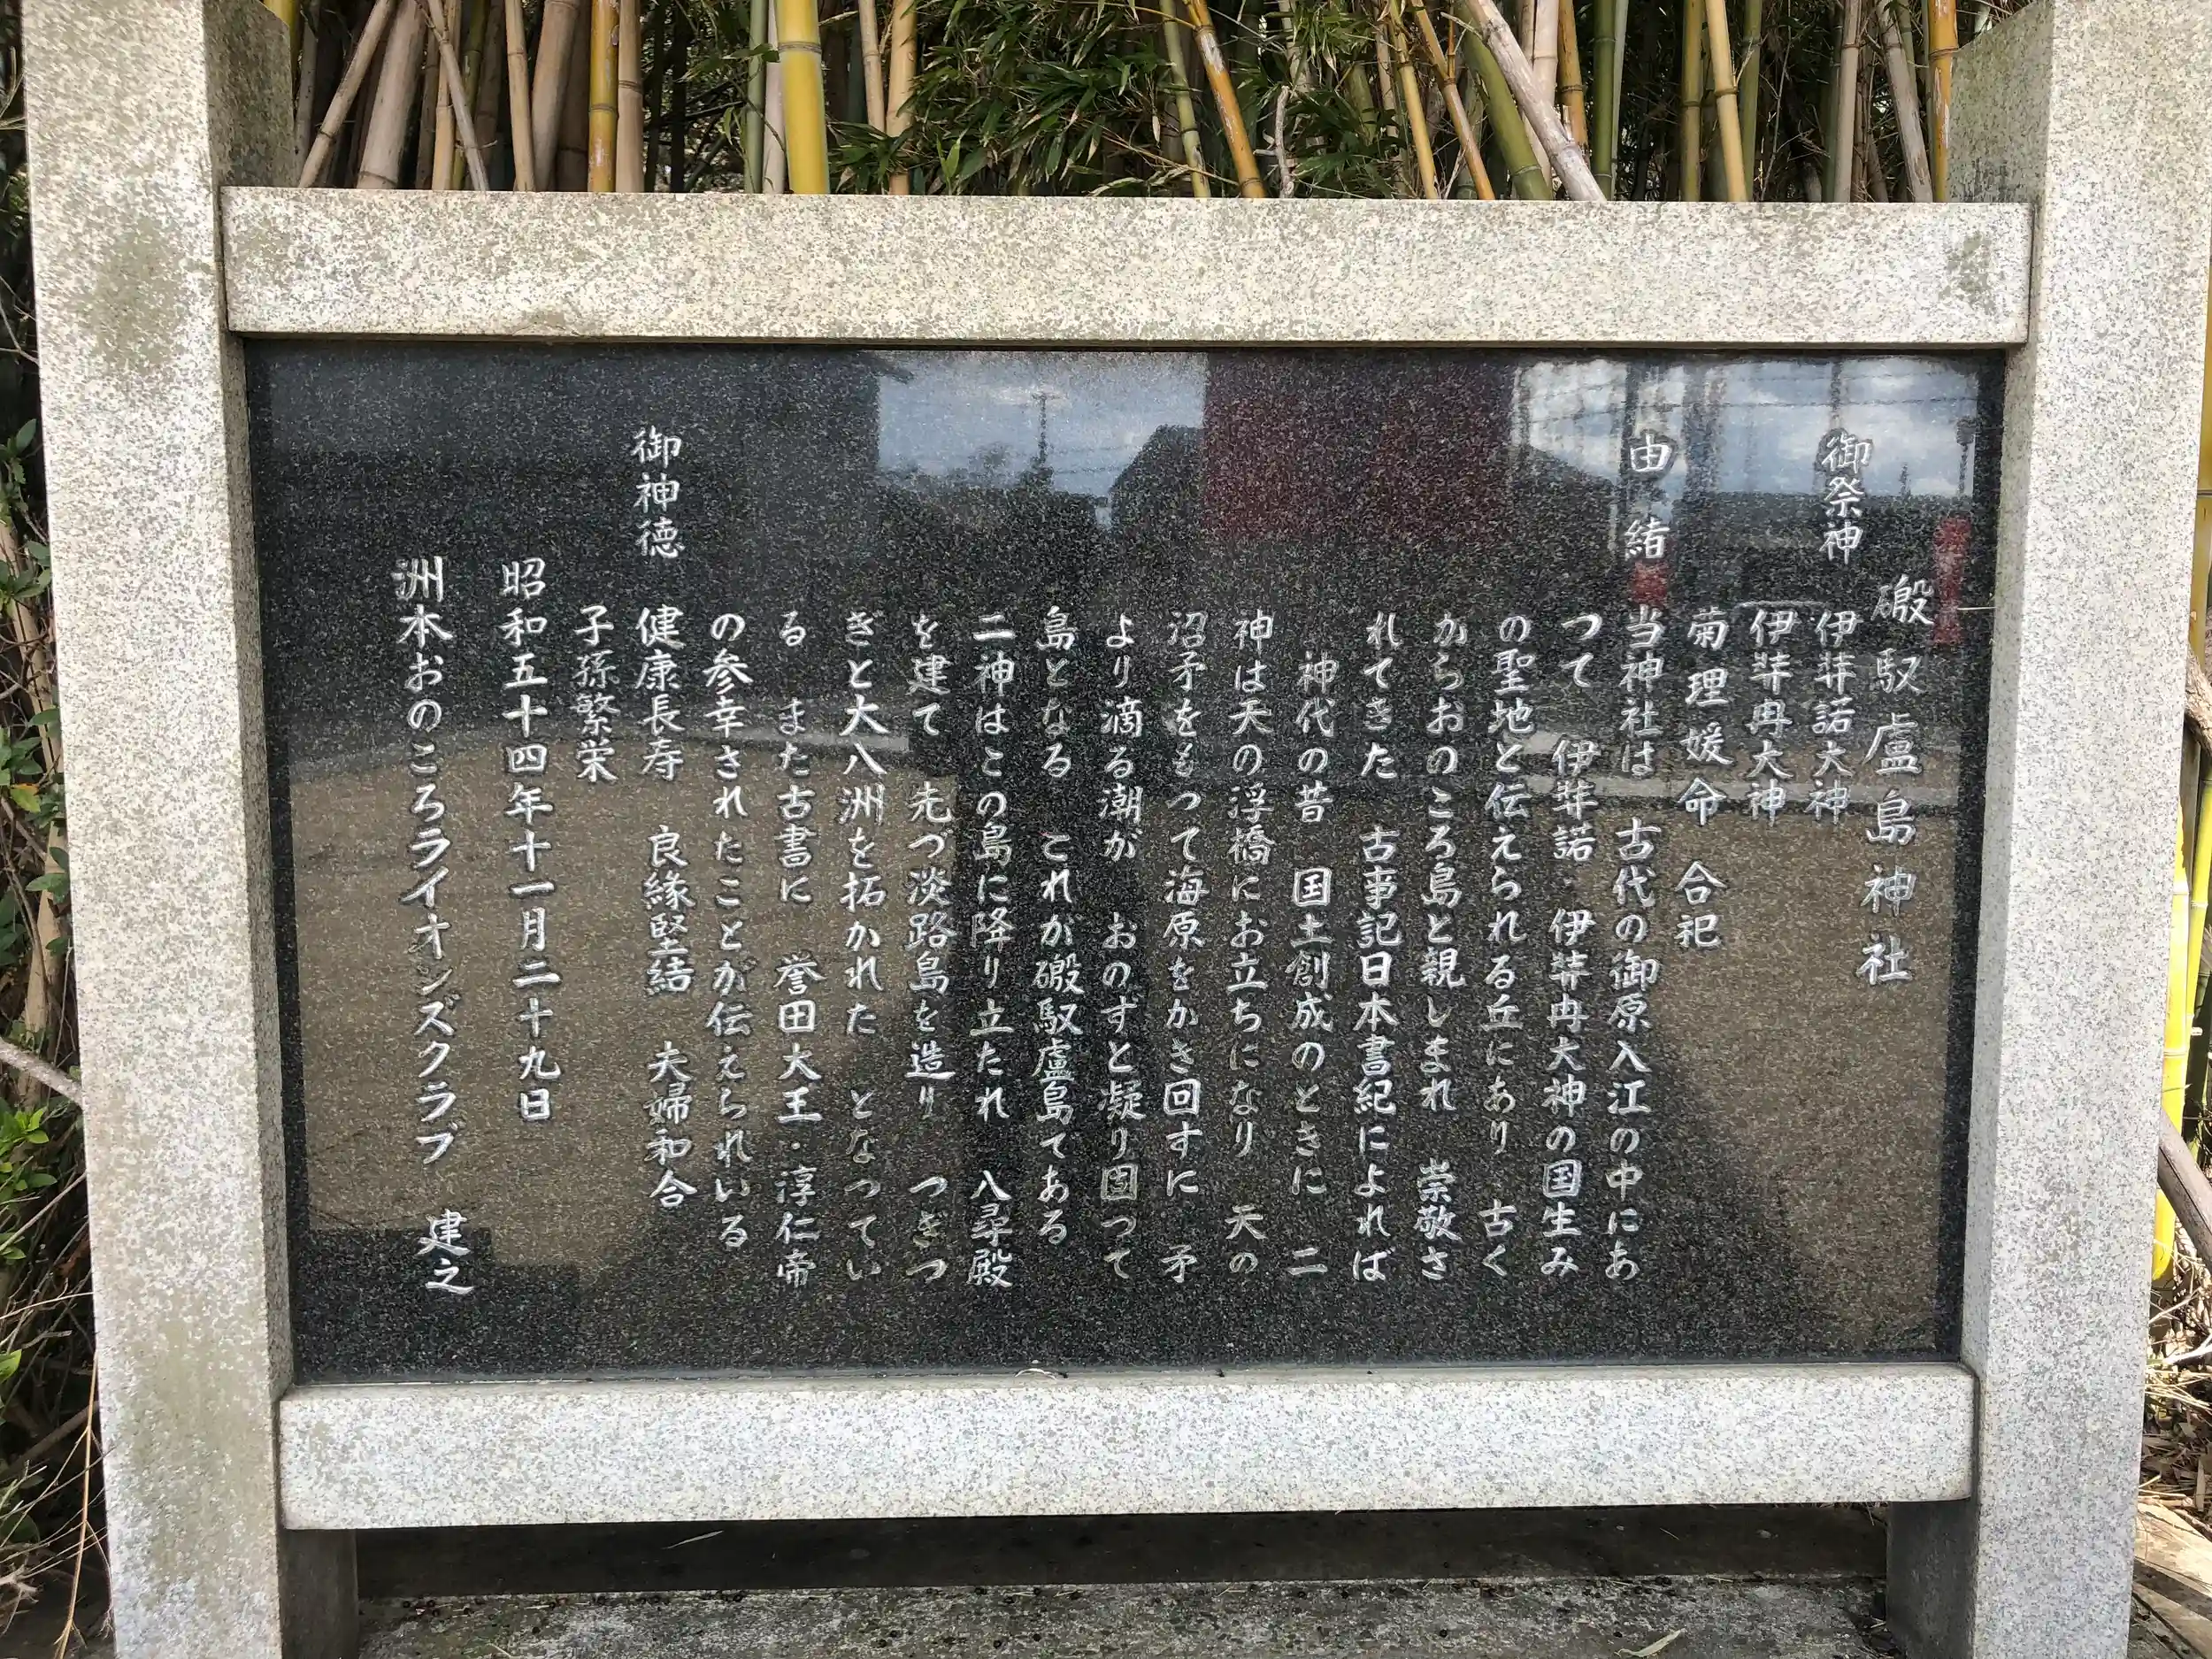 磤馭盧島神社
御祭神 伊弉諾大神
伊弉冉大神
菊理媛命 合祀
由緒 当神社は 古代の御原入江の中にあ
つて 伊弉諾・伊弉冉大神の国生み
の聖地と伝えられる丘にあり 古く
からおのころ島と親しまれ 崇敬さ
れてきた 古事記日本書紀によれば
神代の昔 国土創成のときに 二
神は天の浮橋にお立ちになり 天の
沼矛をもつて海原をかき回すに 矛
より滴る潮が おのずと凝り固つて
島となる これが磤馭盧島てある
二神はこの島に降り立たれ 八尋殿
を建て 先づ淡路島を造り つぎつ
ぎと大八洲を拓かれた となつてい
る また古書に 誉田大王・淳仁帝
の参幸されたことが伝えられいる
御神徳 健康長寿 良縁堅結 夫婦和合
子孫繁栄
昭和五十四年十一月二十九日
洲本おのころライオンズクラブ 建之